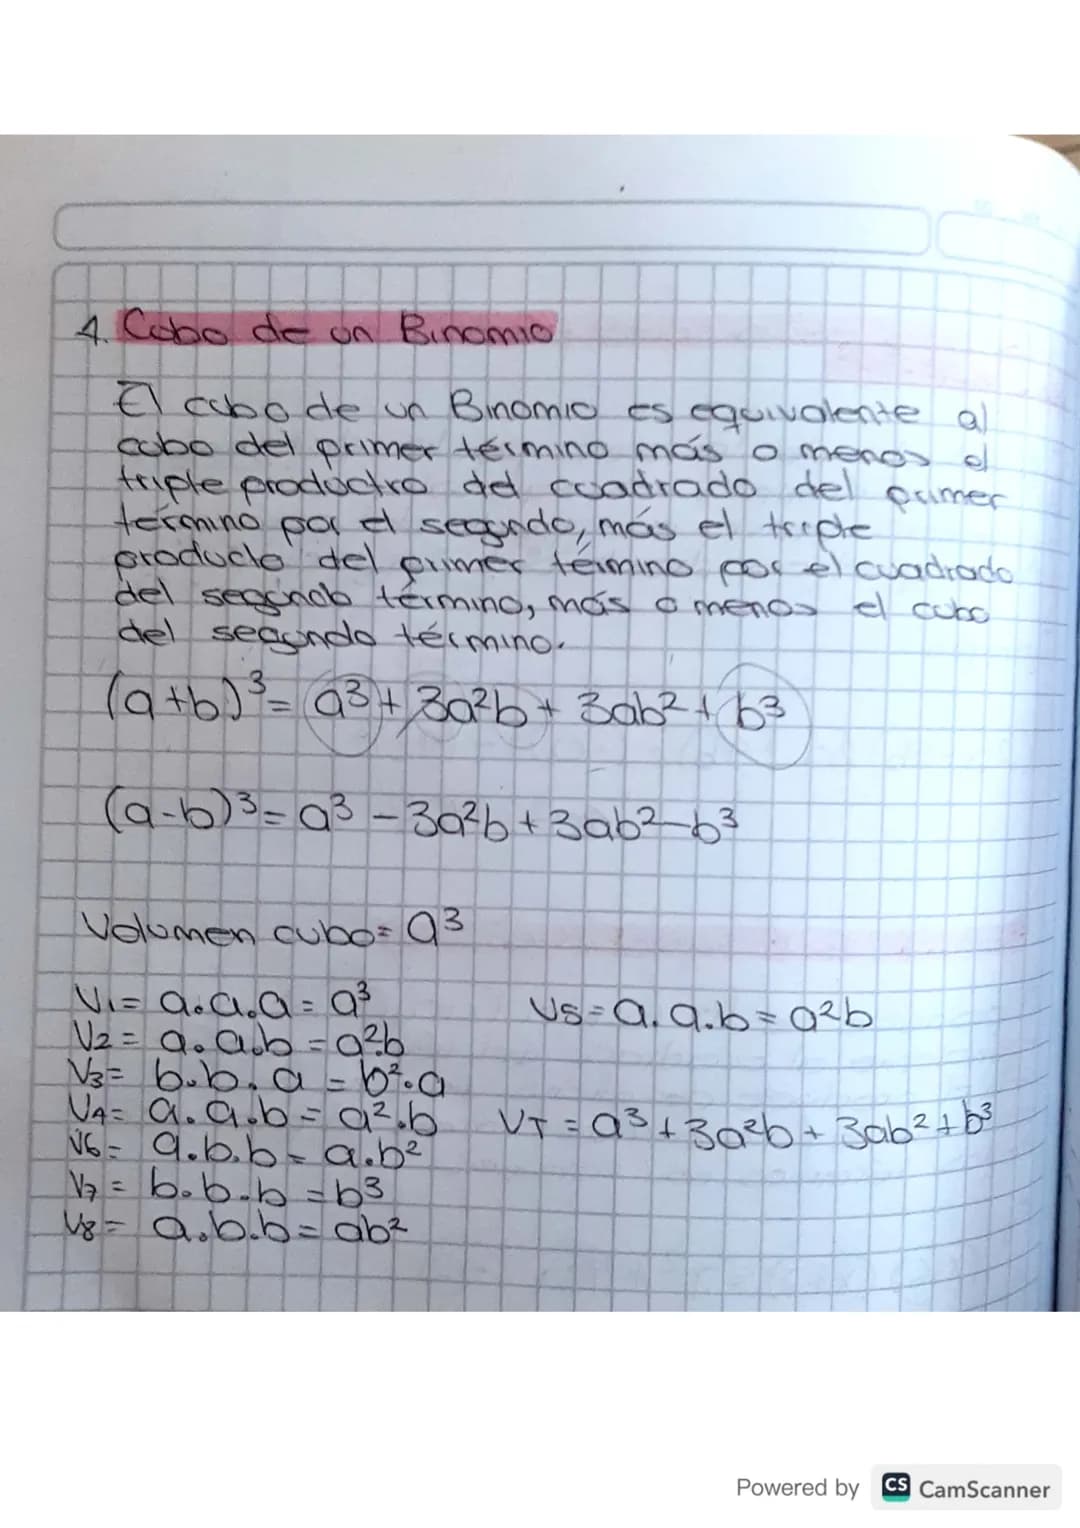 4. Cubo de un Binomio
El cubo de un Binomio es equivalente al
cubo del primer término más o menos el
triple productro del cuadrado del primer
término por el segundo, más el triple
producto del primer término por el cuadrado
del segundo término, más o menos el cubo
del segundo término.
(a+b)³= a³+ 3a²b + 3ab² + b³
(a-b)³= a³ - 3a²b + 3ab² - b³
Volumen cubo= a³
V1= a.a.a = a³
V2 = a.a.b = a².b
V3= b.b.a = b².a
V4= a.a.b = a².b
V6= a.b.b = a.b²
V7 = b.b.b = b³
V8= a.b.b = ab²
V5= a.a.b = a²b
VT = a³ + 3a²b + 3ab² + b³
Powered by CS CamScanner